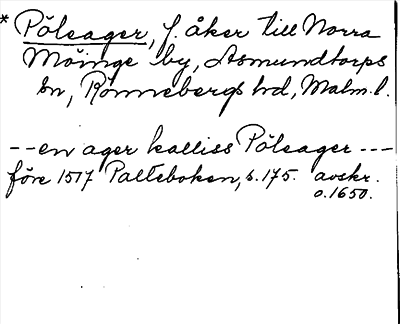 * Pölsager, f. åker till Norra
Möinge by, Asmundtorps
sn, Rönnebergs hd, Malm. l.
-- en ager kalliss Pölsager ---
före 1517 Palteboken, s. 175. avskr.
o. 1650.